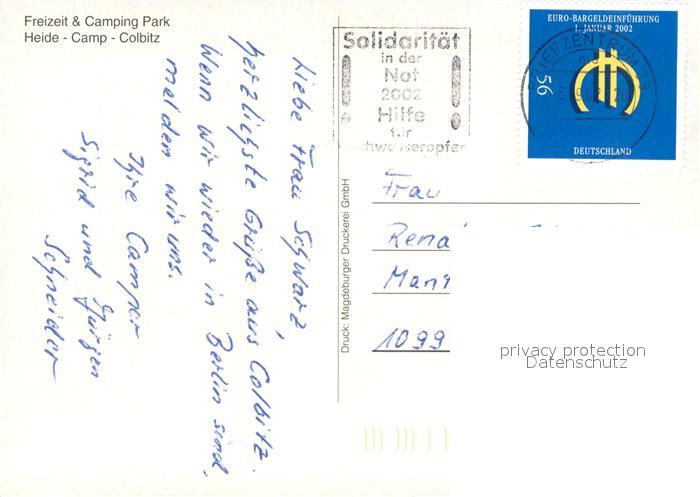 Freizeit & Camping Park
Heide - Camp - Colbitz
Liebe Frau Schwarz,
herzlichste Grüße aus Colbitz.
Wenn wir wieder in Berlin sind,
melden wir uns.
Ihre Camper
Sigrid und Jürgen
Schneider
Druck: Magdeburger Druckerei GmbH
Solidarität
in der
Not
2002
Hilfe
für
Hochwasseropfer
EURO-BARGELDEINFÜHRUNG
1. JANUAR 2002
56
DEUTSCHLAND
BRIEFZENTRUM 39
Frau
Rena
Man
1099
privacy protection
Datenschutz